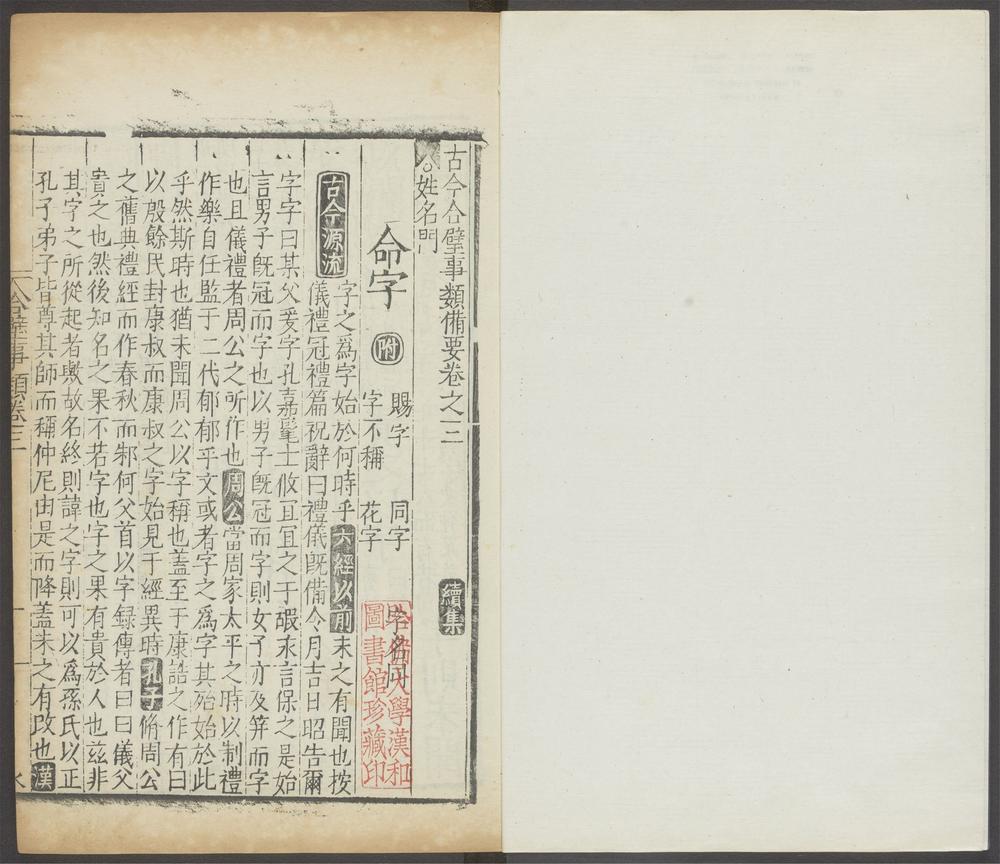 古今合璧事類備要卷之三 續集
姓名門
命字 附 賜字 同字 字名同
字不稱 花字
古今源流 字之爲字始於何時乎六經以前未之有聞也按
儀禮冠禮篇祝辭曰禮儀旣備令月吉日昭告爾
字字曰某父爰字孔嘉髦士攸冝冝之于嘏永言保之是始
言男子旣冠而字也以男子旣冠而字則女子亦及筓而字
也且儀禮者周公之所作也周公當周家太平之時以制禮
作樂自任監于二代郁郁乎文或者字之爲字其殆始於此
乎然斯時也猶未聞周公以字稱也蓋至于康誥之作有曰
以殷餘民封康叔而康叔之字始見于經異時孔子脩周公
之舊典禮經而作春秋而邾何父首以字録傳者曰曰儀父
貴之也然後知名之果不若字也字之果有貴於人也兹非
其字之所從起者歟故名終則諱之字則可以爲孫氏以正
孔子弟子皆尊其師而稱仲尼由是而降蓋未之有改也漢
合璧事類卷三
哈佛大學漢和
圖書館珍藏印